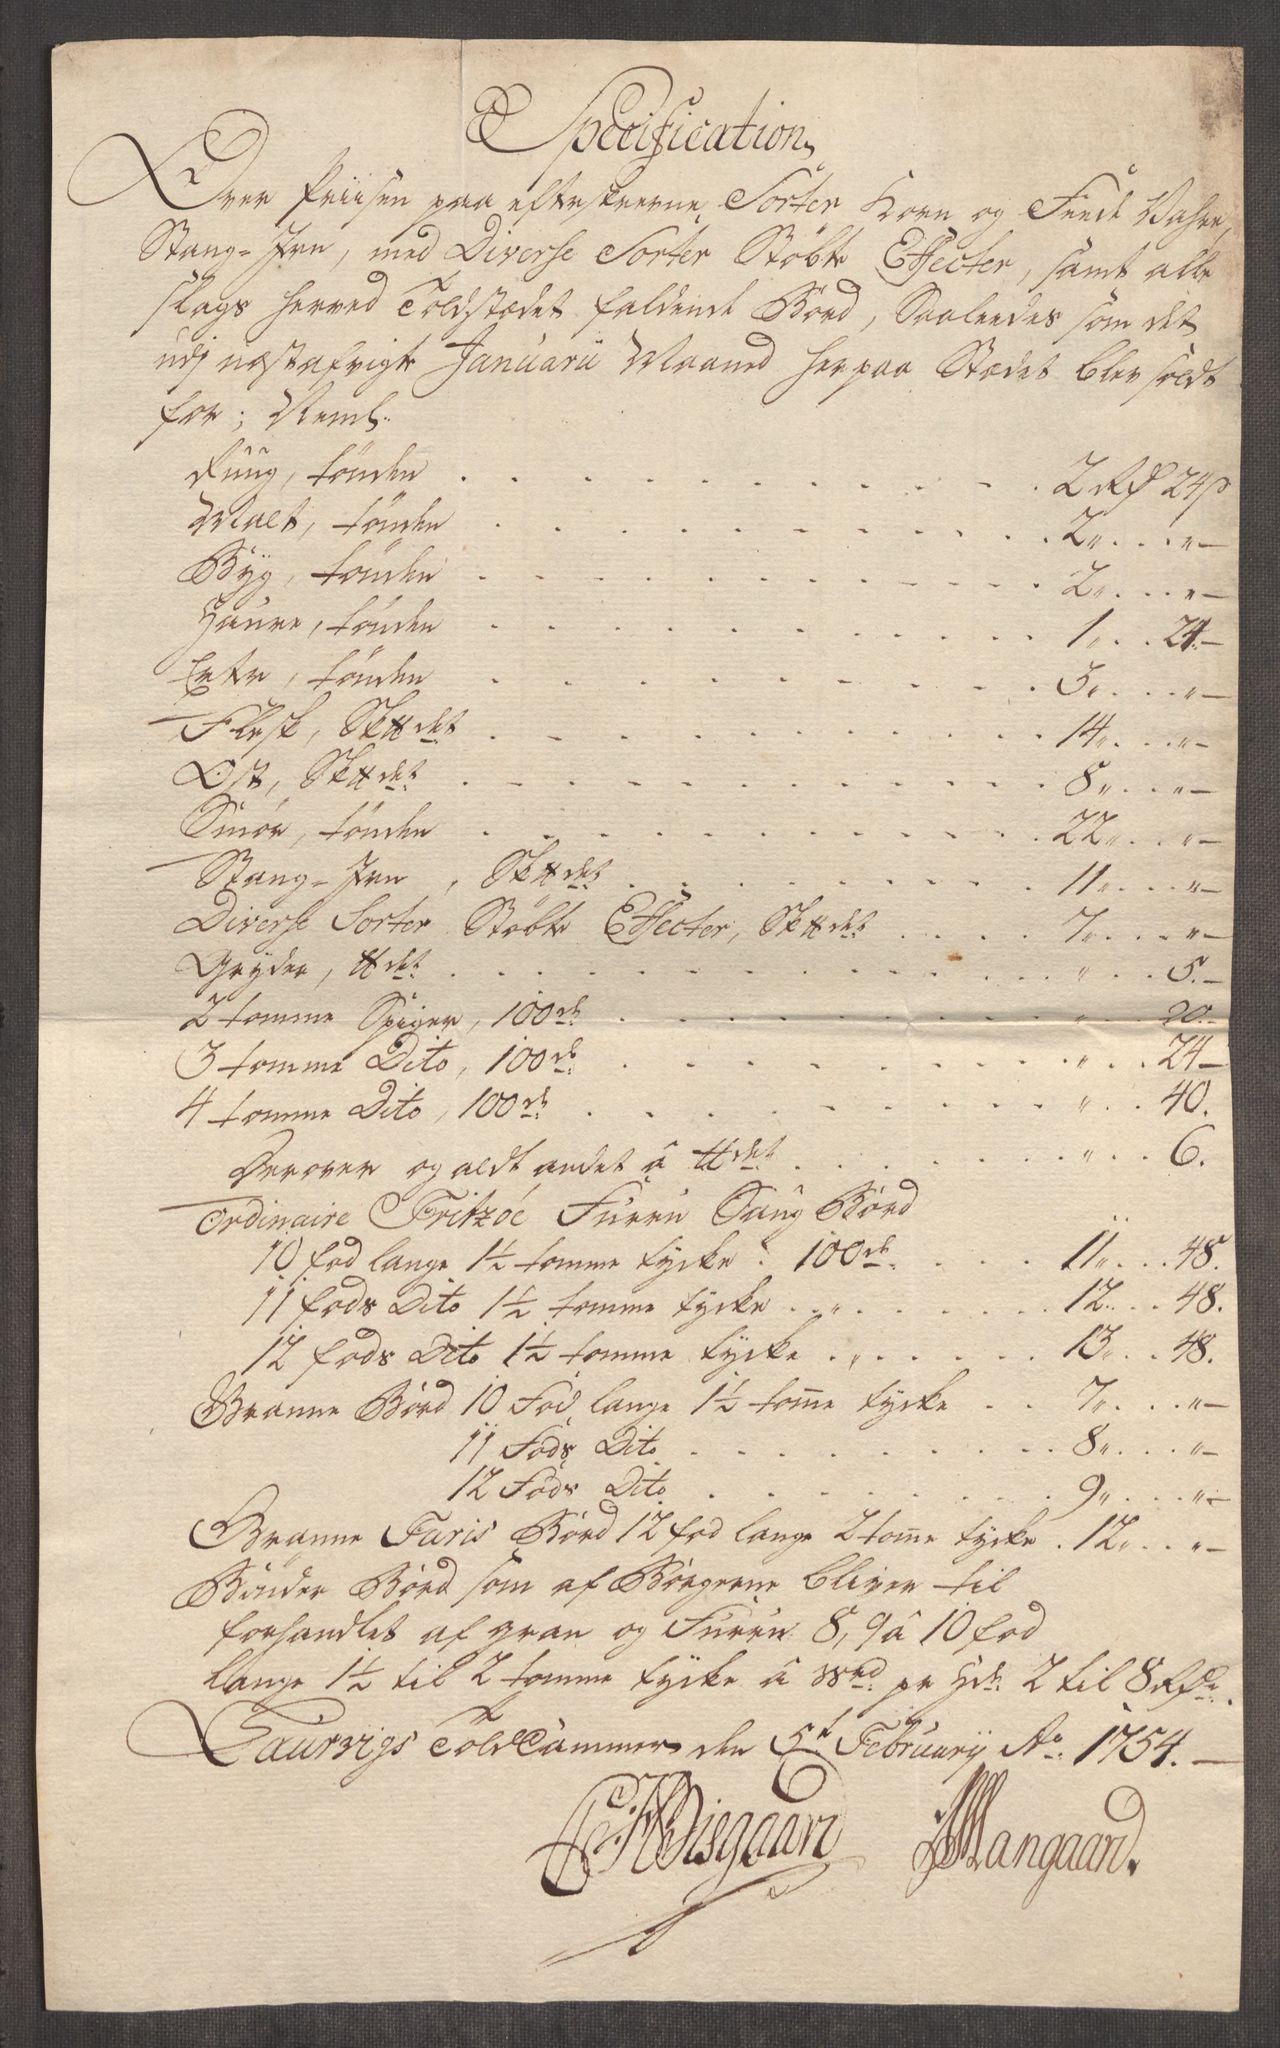 Specification
Over Priisen paa efterskrevne Sorter Korn og Feede Vahre,
Stang-Jern, med Diverse Sorter Støbte Effecter, samt alle
slags herved Toldstædet faldende Bord, Saaleedes som det
udj næstafvigte Januarii Maaned her paa Stædet blev soldt
for; Neml.
Rúug, tönden . . . 2 Rd 24 s
Malt, tönden . . . 2 „ . . „ —
Byg, tönden . . . 2 „ . . „ —
Haure, tönden . . . 1 „ . . 24 —
Erter, tönden . . . 3 „ . . „ —
Flesk, Sk℔det . . . 14 „ . . „ —
Ost, Sk℔det . . . 8 „ . . „ —
Smör, tönden . . . 22 „ . . „ —
Stang-Jern, Sk℔det . . . 11 „ . . „ —
Diverse Sorter Støbte Effecter, Sk℔det . . . 7 „ . . „ —
Gryder, ℔det . . . „ . . 5. —
2 tomme Spiger, 100de . . . „ . . 20. —
3 tomme Dito, 100de . . . „ . . 24 —
4 tomme Dito, 100de . . . „ . . 40.
Derover og aldt andet â ℔det . . . „ . . 6.
Ordinaire Fritzöe Fúrrú Saúg Bord
10 fod lange 1½ tomme tycke . 100de . . . 11 „ . . 48.
11 fods Dito 1½ tomme tycke . . „ . . . 12 . . 48.
12 fods Dito 1½ tomme tycke . . „ . . . 13 „ . . 48.
Granne Bord 10 Fod lange 1½ tom̄e tycke . . 7 „ . . „ —
11 Fods Dito . . . 8 „ . . „ —
12 Fods Dito . . . 9 „ . . „ —
Granne Faris Bord 12 fod lange 2 tom̄e tycke . 12 „ . . „ —
Bönder Bord som af Borgerne bliver til
forhandlet af gran og Fúrrú 8, 9 â 10 fod
lange 1½ til 2 tomme tycke â pr 2 til 8 Rdr.
Laurvigs Told Cammer den 5t Februarij Ao 1754. —
Wisgaard Mangaard.